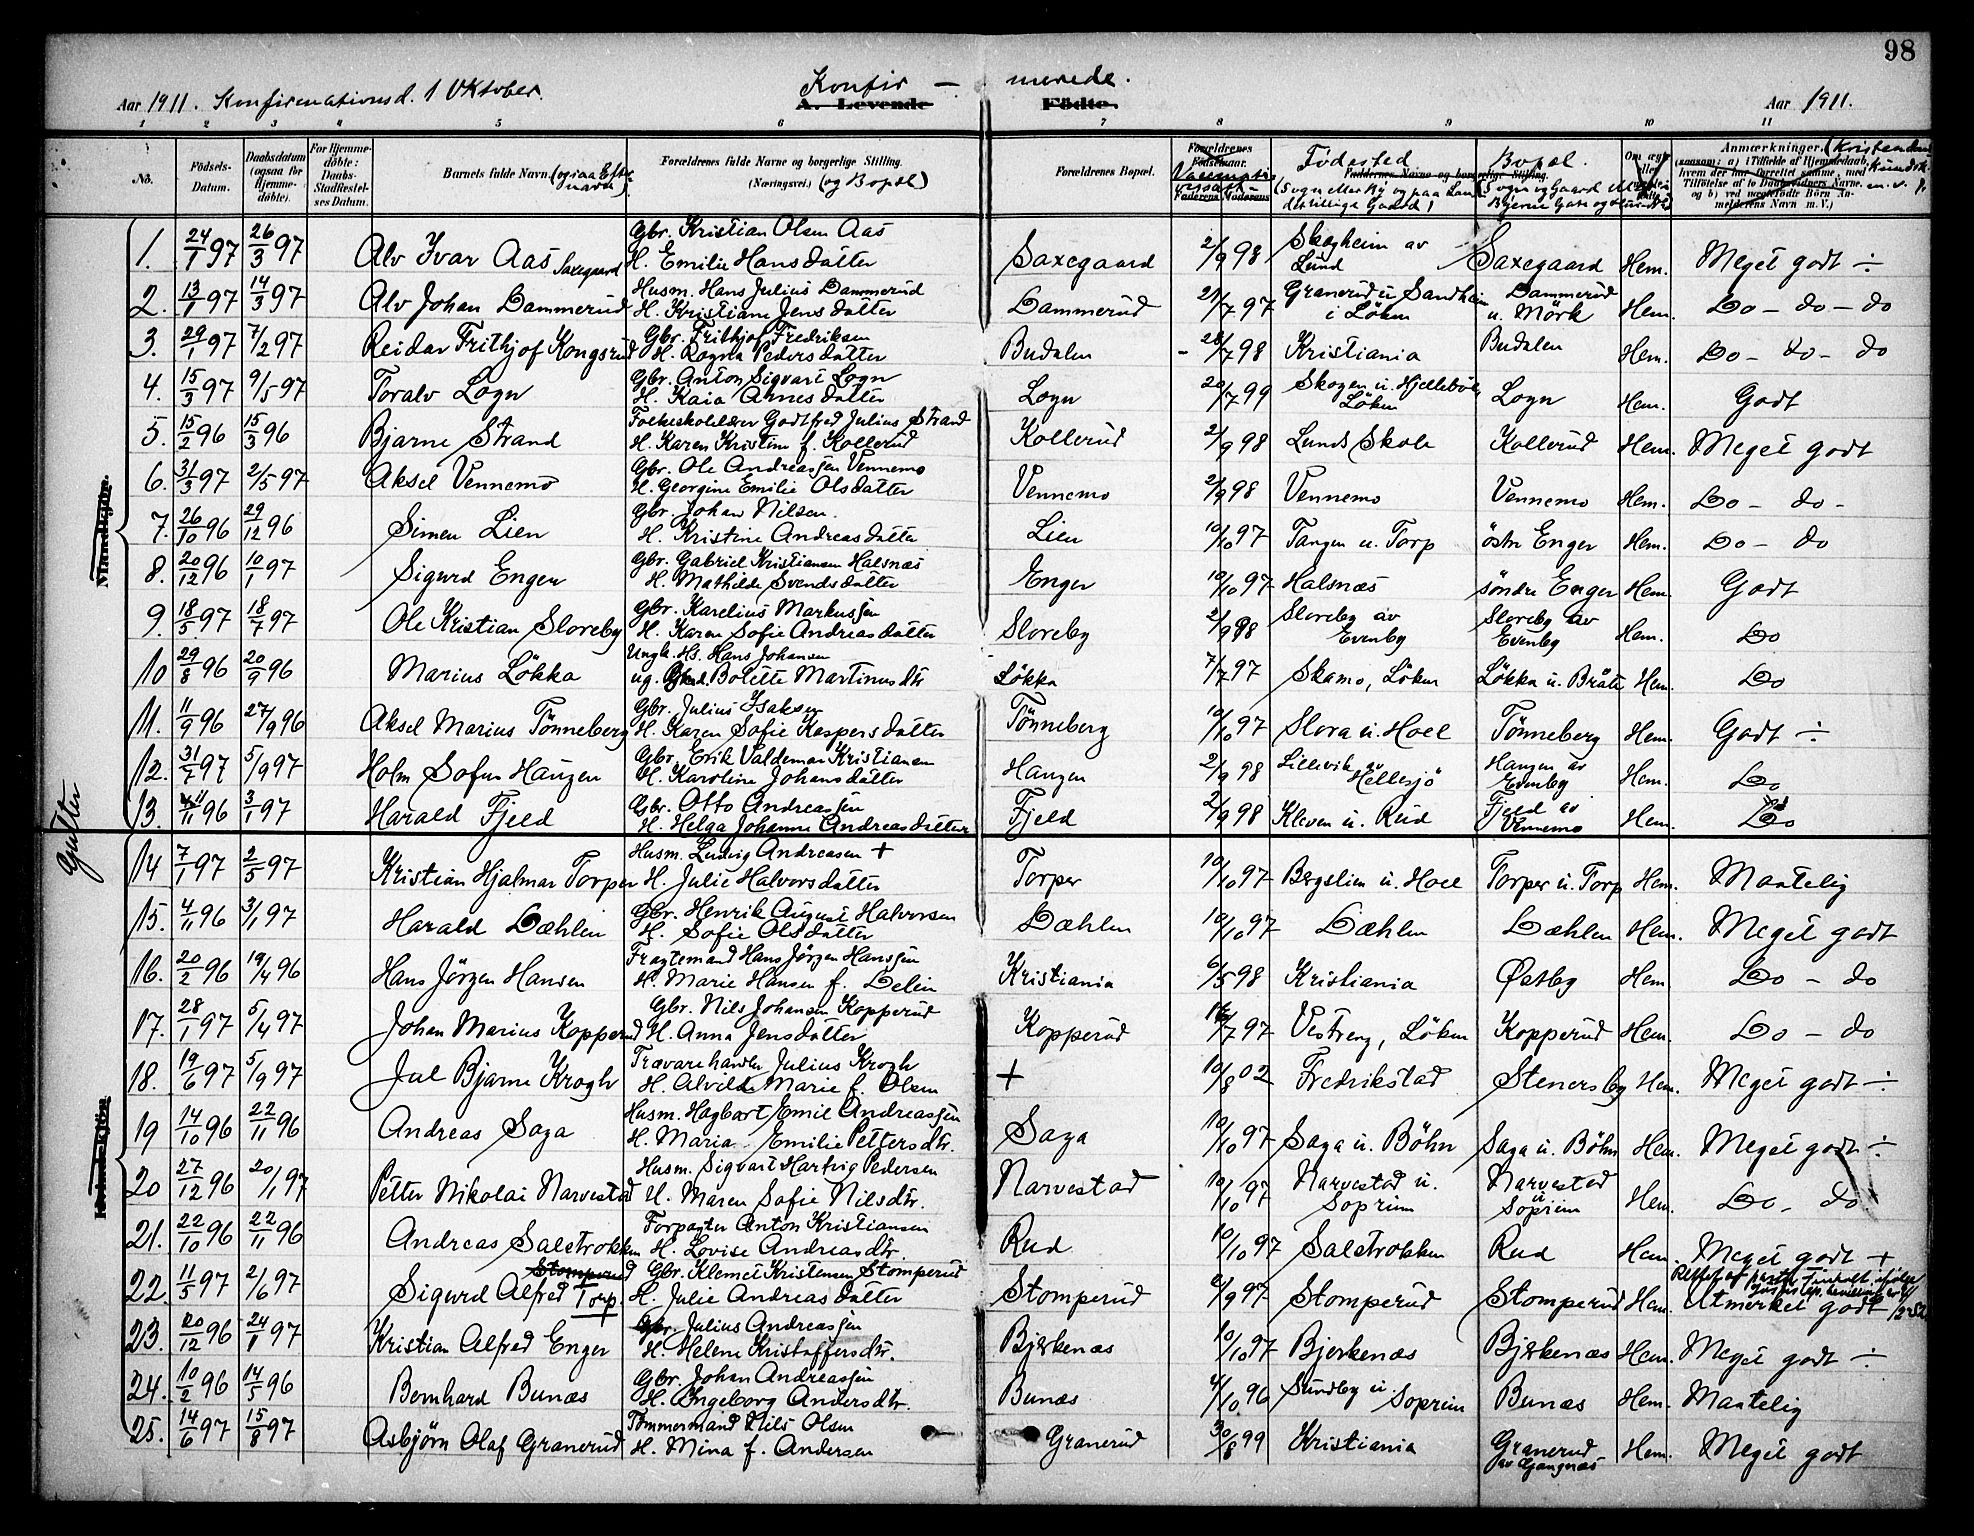 98
Aar 1911. Konfirmationsd. 1 Oktober. Konfir – merede. Aar 1911.
A. Levende Fødte.
1 2 3 4 5 6 7 8 9 10 11
No. Fødsels-Datum. Daabsdatum (ogsaa for Hjemmedøbte). For Hjemmedøbte: Daabs-Stadfæstelses Datum. Barnets fulde Navn (ogsaa Efternavn) Forældrenes fulde Navne og borgerlige Stilling. (Næringsvei.) (og Bopæl) Forældrenes Bopæl. Forældrenes Fødselsaar. Faderens Moderens Fødested Bopæl. Faddernes Navne og borgerlige Stilling. Anmærkninger. (Kristendoms Kundsk. m. v.
Mandkjøn.
Gutter
1. 24/1 97 26/3 97 Alv Ivar Aas Saxegaard Gbr. Kristian Olsen Aas
H. Emilie Hansdatter Saxegaard 2/9 98 Skogheim av Lund Saxegaard Hem. Meget godt ÷
2. 13/1 97 14/3 97 Alv Johan Dammerud Husm. Hans Julius Dammerud
H. Kristiane Jensdatter Dammerud 21/7 97 Granerud u. Sandheim i Löken Dammerud u. Mörk Hem. Do – do – do
3. 29/1 97 7/2 97 Reidar Frithjof Kongsrud Gbr. Frithjof Fredriksen
H. Ragna Pedersdatter Budalen 28/7 98 Kristiania Budalen Hem. Do – do – do
4. 15/3 97 9/5 97 Toralv Logn Gbr. Anton Sigvart Logn
H. Kaia Annesdatter Logn 20/7 99 Skogen u. Hjellebøl, Löken Logn Hem. Godt
5. 15/2 96 15/3 96 Bjarne Strand Folkeskolelærer Godtfred Julius Strand
H. Karen Kristine f. Kollerud Kollerud 2/9 98 Lunds Skole Kollerud Hem. Meget godt
6. 31/3 97 2/5 97 Aksel Vennemo Gbr. Ole Andreassen Vennemo
H. Georgine Emilie Olsdatter Vennemo 2/9 98 Vennemo Vennemo Hem. Do – do –
7. 26/10 96 29/12 96 Simen Lien Gbr. Johan Nilsen.
H. Kristine Andreasdatter Lien 10/10 97 Tangen u. Torp östre Enger Hem. Do – do
8. 20/12 96 10/1 97 Sigurd Enger Gbr. Gabriel Kristiansen Halsnæs
H. Mathilde Svendsdatter Enger 10/10 97 Halsnæs söndre Enger Hem. Godt
9. 18/5 97 18/7 97 Ole Kristian Sloreby Gbr. Karelius Markussen
H. Karen Sofie Andreasdatter Sloreby 2/9 98 Sloreby av Evenby Sloreby av Evenby Hem. Do
10 29/8 96 20/9 96 Marius Lökka Ungk. Hs. Hans Johansen
ug. Gbrd. Bolette Martinusdtr Lökka 7/7 97 Skamo, Löken Lökka u. Bråte Hem. Do
11. 11/9 96 27/9 96 Aksel Marius Tönneberg Gbr. Julius Isaksen
H. Karen Sofie Kaspersdatter Tönneberg 10/10 97 Slora u. Hoel Tönneberg Hem. Godt ÷
12. 31/7 97 5/9 97 Holm Sofus Haugen Gbr. Erik Valdemar Kristiansen
H. Karoline Johansdatter Haugen 2/9 98 Lillevik av Hellesjö Haugen av Evenby Hem. Do
13. 4/11 96 3/1 97 Harald Fjeld Gbr. Otto Andreassen
H. Helga Johanne Andreasdatter Fjeld 2/9 98 Kleven u. Rud Fjeld av Vennemo Hem. Do
Kvindekjøn.
14 7/1 97 2/5 97 Kristian Hjalmar Torper Husm. Ludvig Andreasen +
H. Julie Halvorsdatter Torper 10/10 97 Bergslien u. Hoel Torper u. Torp Hem. Maatelig
15. 4/11 96 3/1 97 Harald Dæhlen Gbr. Henrik August Halvorsen
H. Sofie Olsdatter Dæhlen 10/10 97 Dæhlen Dæhlen Hem. Meget godt
16. 20/2 96 19/4 96 Hans Jörgen Hansen Fragtemand Hans Jörgen Hanssen
H. Marie Hansen f. Delin Kristiania 6/5 98 Kristiania Østby Hem Do – do
17. 28/1 97 5/4 97 Johan Marius Kopperud Gbr. Nils Johansen Kopperud
H. Anna Jensdatter Kopperud 16/7 97 Vestreng, Löken Kopperud Hem. Do – do
18. 19/6 97 5/9 97 Jul Bjarne Krogh Trævarehandler Julius Krogh
H. Alvilde Marie f. Olsen + 10/8 02 Fredrikstad Stenersby Hem. Meget godt ÷
19 14/10 96 22/11 96 Andreas Saga Husm. Hagbart Emil Andreassen
H. Maria Emilie Pettersdtr. Saga 10/10 97 Saga u. Böhn Saga u. Böhn Hem. Meget godt ÷
20 27/12 96 20/1 97 Petter Nikolai Narvestad Husm. Sigvart Hartvig Pedersen
H. Maren Sofie Nilsdtr. Narvestad 10/10 97 Narvestad u. Soprim Narvestad u Söprim Hem. Do – do
21. 22/10 96 22/11 96 Andreas Saletrokken Forpagter Anton Kristiansen
H. Lovise Andreasdtr. Rud 10/10 97 Saletrokken Rud Hem. Meget godt +
22. 11/5 97 2/6 97 Sigurd Alfred Stomperud Torp. Gbr. Klemet Kristensen Stomperud
H. Julie Andreasdatter Stomperud 2/9 97 Stomperud Stomperud Hem. Utmerket godt
23. 20/12 96 24/1 97 Kristian Alfred Enger Gbr. Julius Andreassen
H. Helene Kristoffersdtr. Bjerkenæs 10/10 97 Bjerkenæs Bjerkenæs Hem. Meget godt ÷
24. 10/2 96 14/5 96 Bernhard Bunæs Gbr. Johan Andreassen
H. Ingeborg Andersdtr. Bunæs 4/10 96 Sundby u. Soprim Bunæs Hem. Maatelig
25. 14/6 97 15/8 97 Asbjörn Olaf Granerud Tömmermand Nils Olsen
H. Mina f. Andersen Granerud 30/8 99 Kristiania Granerud av Gangnæs Hem. Meget godt